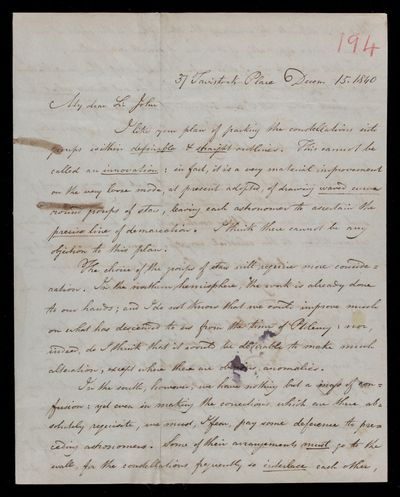 194
37 Tavistock Place Decem 15. 1840
My dear Sir John
I like your plan of packing the constellations into
groups within definable & straight outlines. This cannot be
called an innovation: in fact, it is a very material improvement
on the very loose mode, at present adopted, of drawing
round groups of stars, leaving each astronomer to ascertain the
precise line of demarcation. I think there cannot be any
objection to this plan.
The choice of the groups of stars will require more conside=
ration. In the northern hemisphere, the work is already done
to our hands; and I do not know that we could improve much
on what has descended to us from the time of Ptolemy: nor,
indeed, do I think that it would be desirable to make much
alteration, except where there are obvious anomalies.
In the south, however, we have nothing but a mass of con=
fusion; yet even in making the corrections which are there ab=
solutely requisite, we must, I fear, pay some deference to pre=
ceding astronomers. Some of their arrangements must go to the
wall, for the constellations frequently so interlace each other,